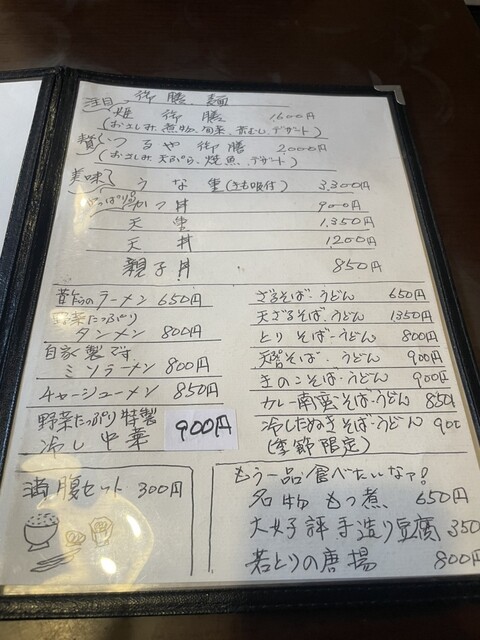 御膳麺
注目 姫御膳 1600円
(おさしみ、煮物、旬菜、茶わんむし、デザート)
贅 つるや御膳 2000円
(おさしみ、天ぷら、焼魚、デザート)
美味 うな重(きも吸付) 3,300円
やっぱりかつ丼 900円
天重 1,350円
天丼 1200円
親子丼 850円
昔ながらのラーメン 650円
野菜たっぷり
タンメン 800円
自家製です
ミソラーメン 800円
チャーシューメン 850円
野菜たっぷり特製
冷し中華 900円
ざるそば・うどん 650円
天ざるそば・うどん 1350円
とりそば・うどん 800円
天ぷらそば・うどん 900円
きのこそば・うどん 900円
カレー南蛮そば・うどん 850円
冷したぬきそば・うどん 900
(季節限定)
満腹セット 300円
もう一品食べたいなァ!
名物もつ煮 650円
大好評手造り豆腐 350
若とりの唐揚 800円